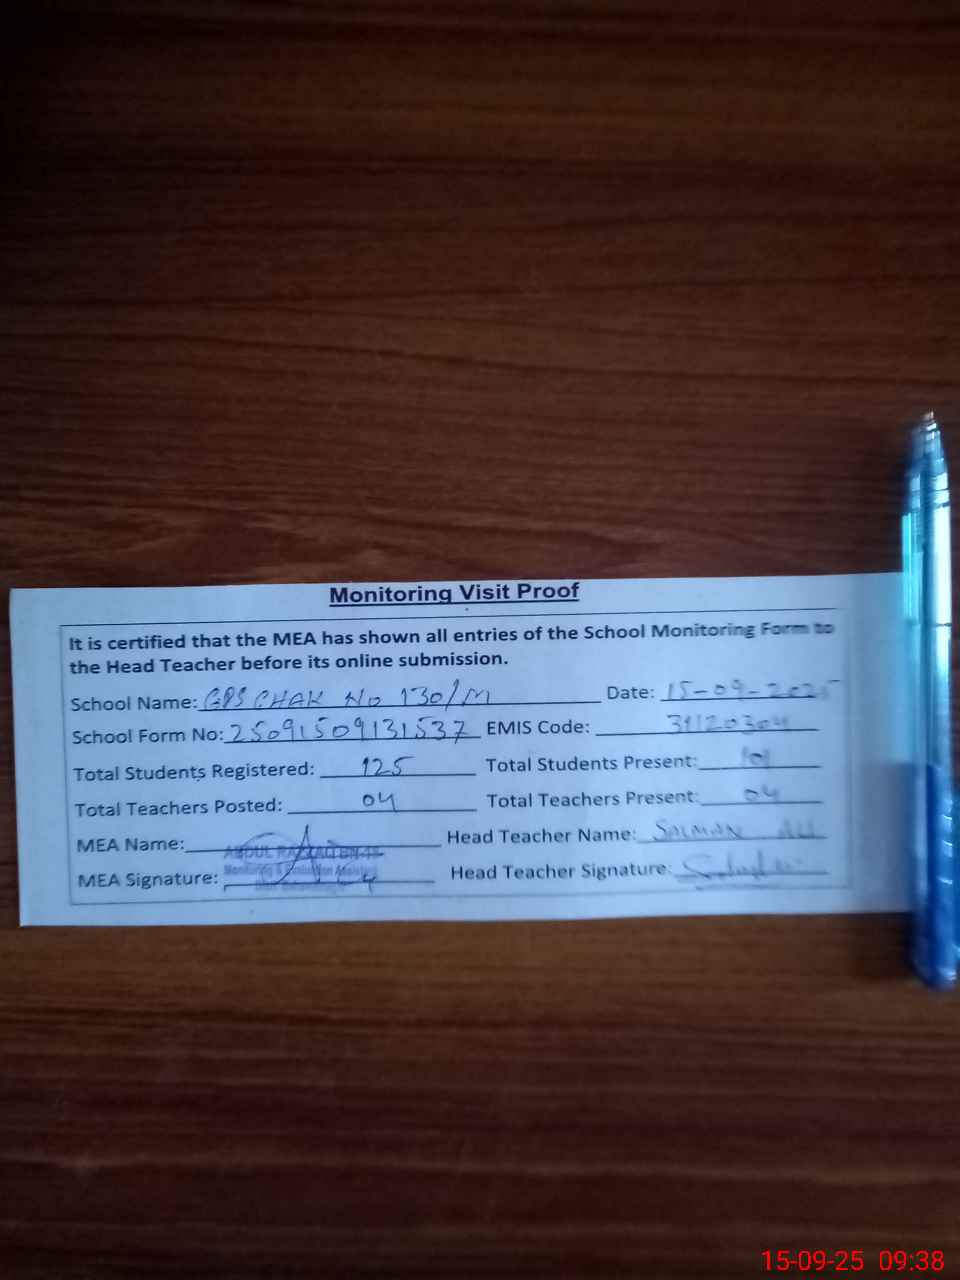 Monitoring Visit Proof
It is certified that the MEA has shown all entries of the School Monitoring Form to
the Head Teacher before its online submission.
School Name: GPS CHAK No 130/M Date: 15-09-2025
School Form No: 25091509131537 EMIS Code: 31120304
Total Students Registered: 125 Total Students Present: 101
Total Teachers Posted: 04 Total Teachers Present: 04
MEA Name: ABDUL Head Teacher Name: SALMAN ALI
Monitoring & Evaluation Assistant
MEA Signature: Head Teacher Signature:
15-09-25 09:38